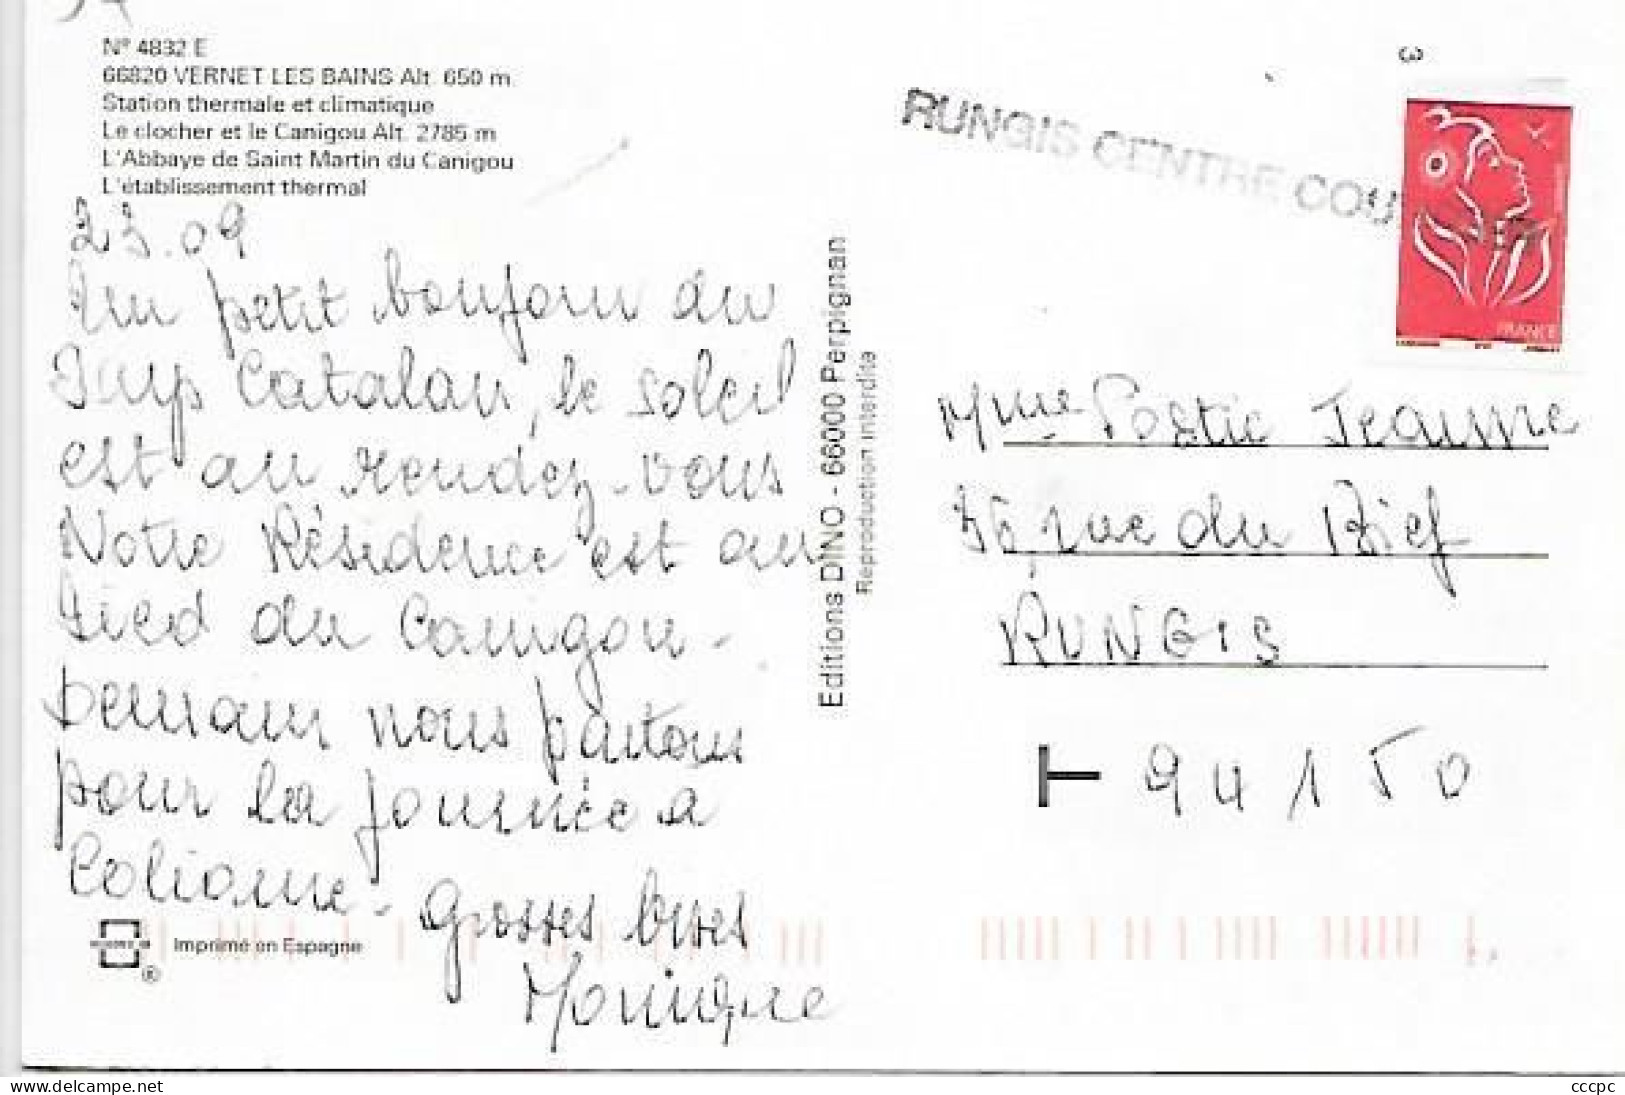 N° 4832 E
66820 VERNET LES BAINS Alt. 650 m
Station thermale et climatique
Le clocher et le Canigou Alt. 2785 m
L'Abbaye de Saint Martin du Canigou
L'établissement thermal
23.09
Un petit bonjour du
Pays Catalan, le soleil
est au rendez-vous
Notre Résidence est au
Pied du Canigou -
Demain nous partons
pour la journée a
Collioure - Grosses bises
Monique
Imprimé en Espagne
Editions DINO - 66000 Perpignan
Reproduction interdite
RUNGIS CENTRE COU
3
FRANCE
Mme Postic Jeanne
36 rue du Bief
RUNGIS
94150
www.delcampe.net
cccpc